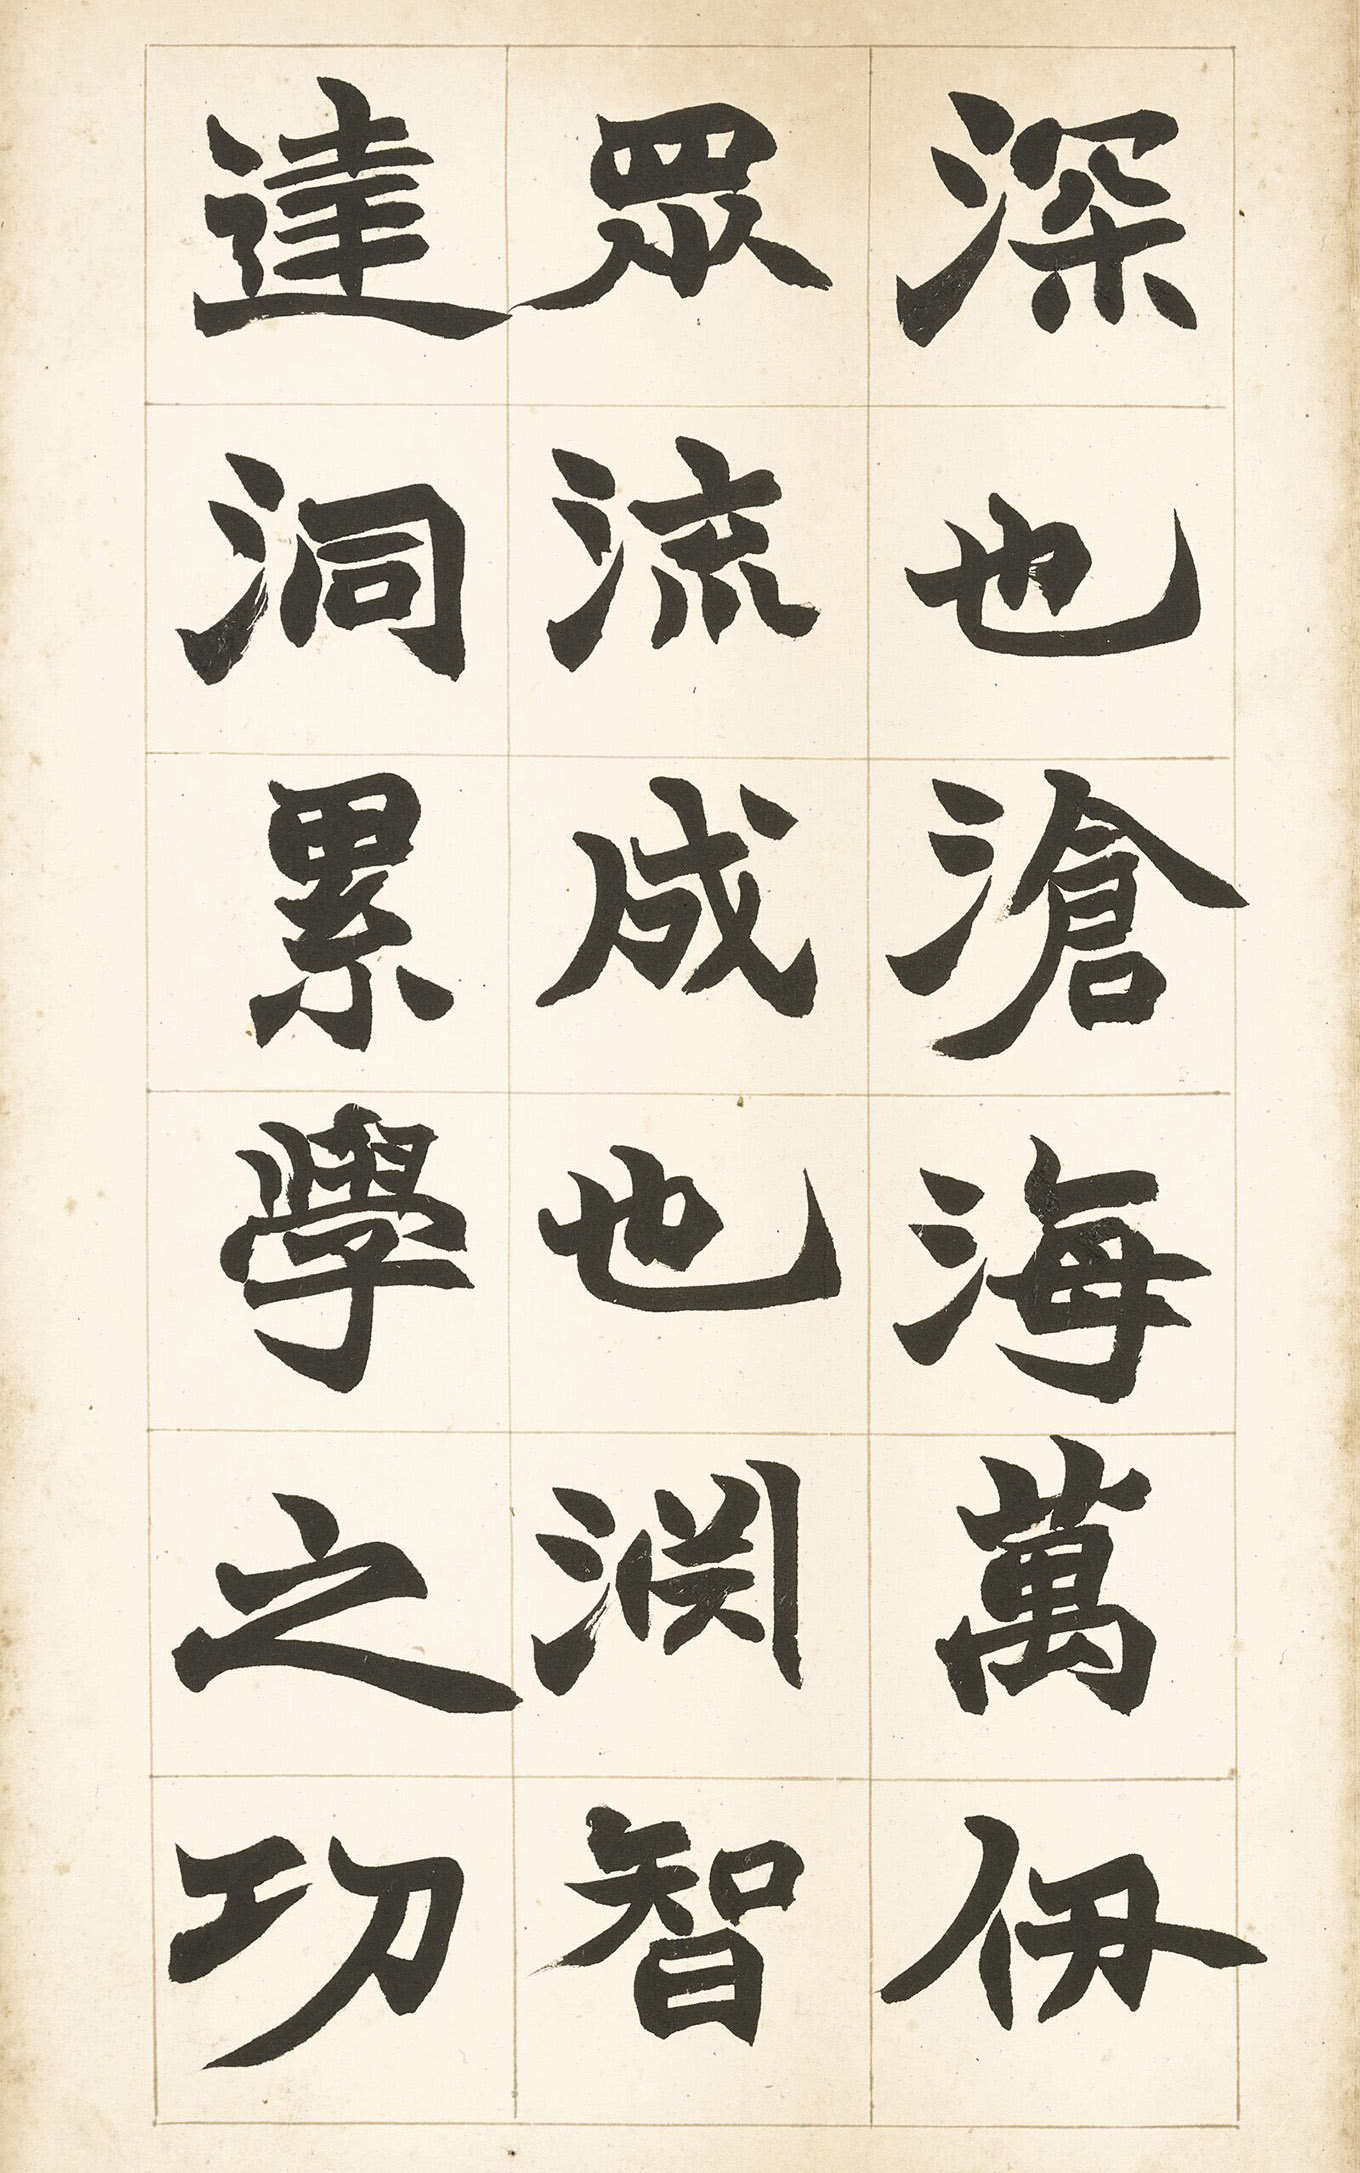 深也滄海萬仞
眾流成也淵智
達洞累學之功